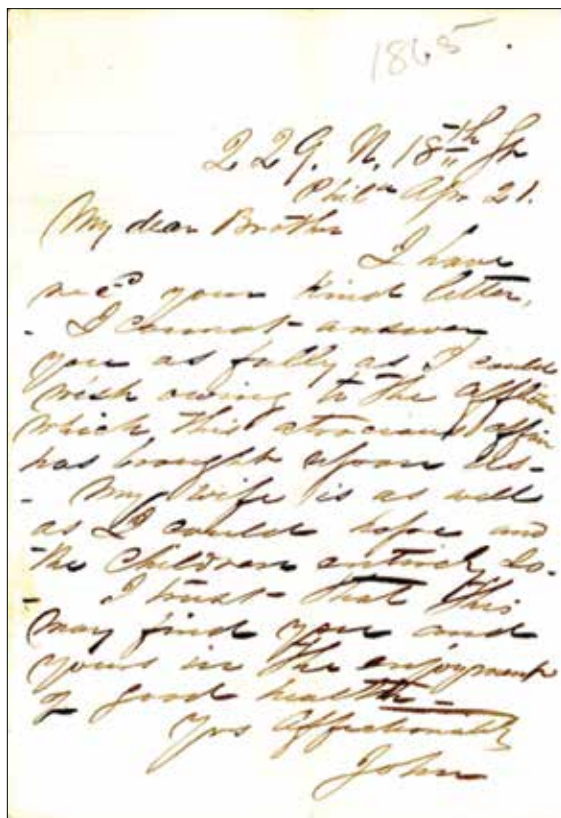 1865.
229. N. 18th St
Phila Apr 21.
My dear Brother
I have
rec'd your kind letter,
- I cannot answer
you as fully as I could
wish owing to the affliction
which this atrocious affair
has brought upon us-
- My wife is as well
as I could hope and
the children entirely so-
- I trust that this
may find you and
yours in the enjoyment
of good health-
Yrs Affectionately
John